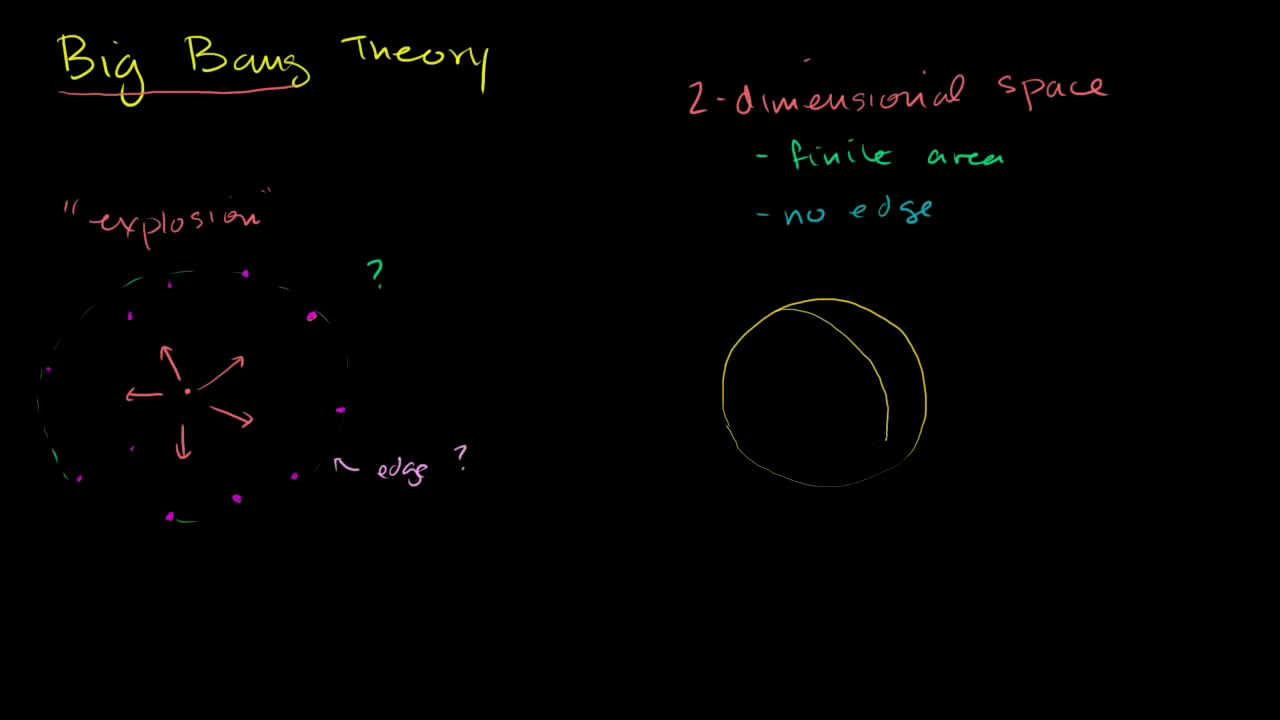 Big Bang Theory
"explosion"
?
edge ?
2-dimensional space
- finite area
- no edge